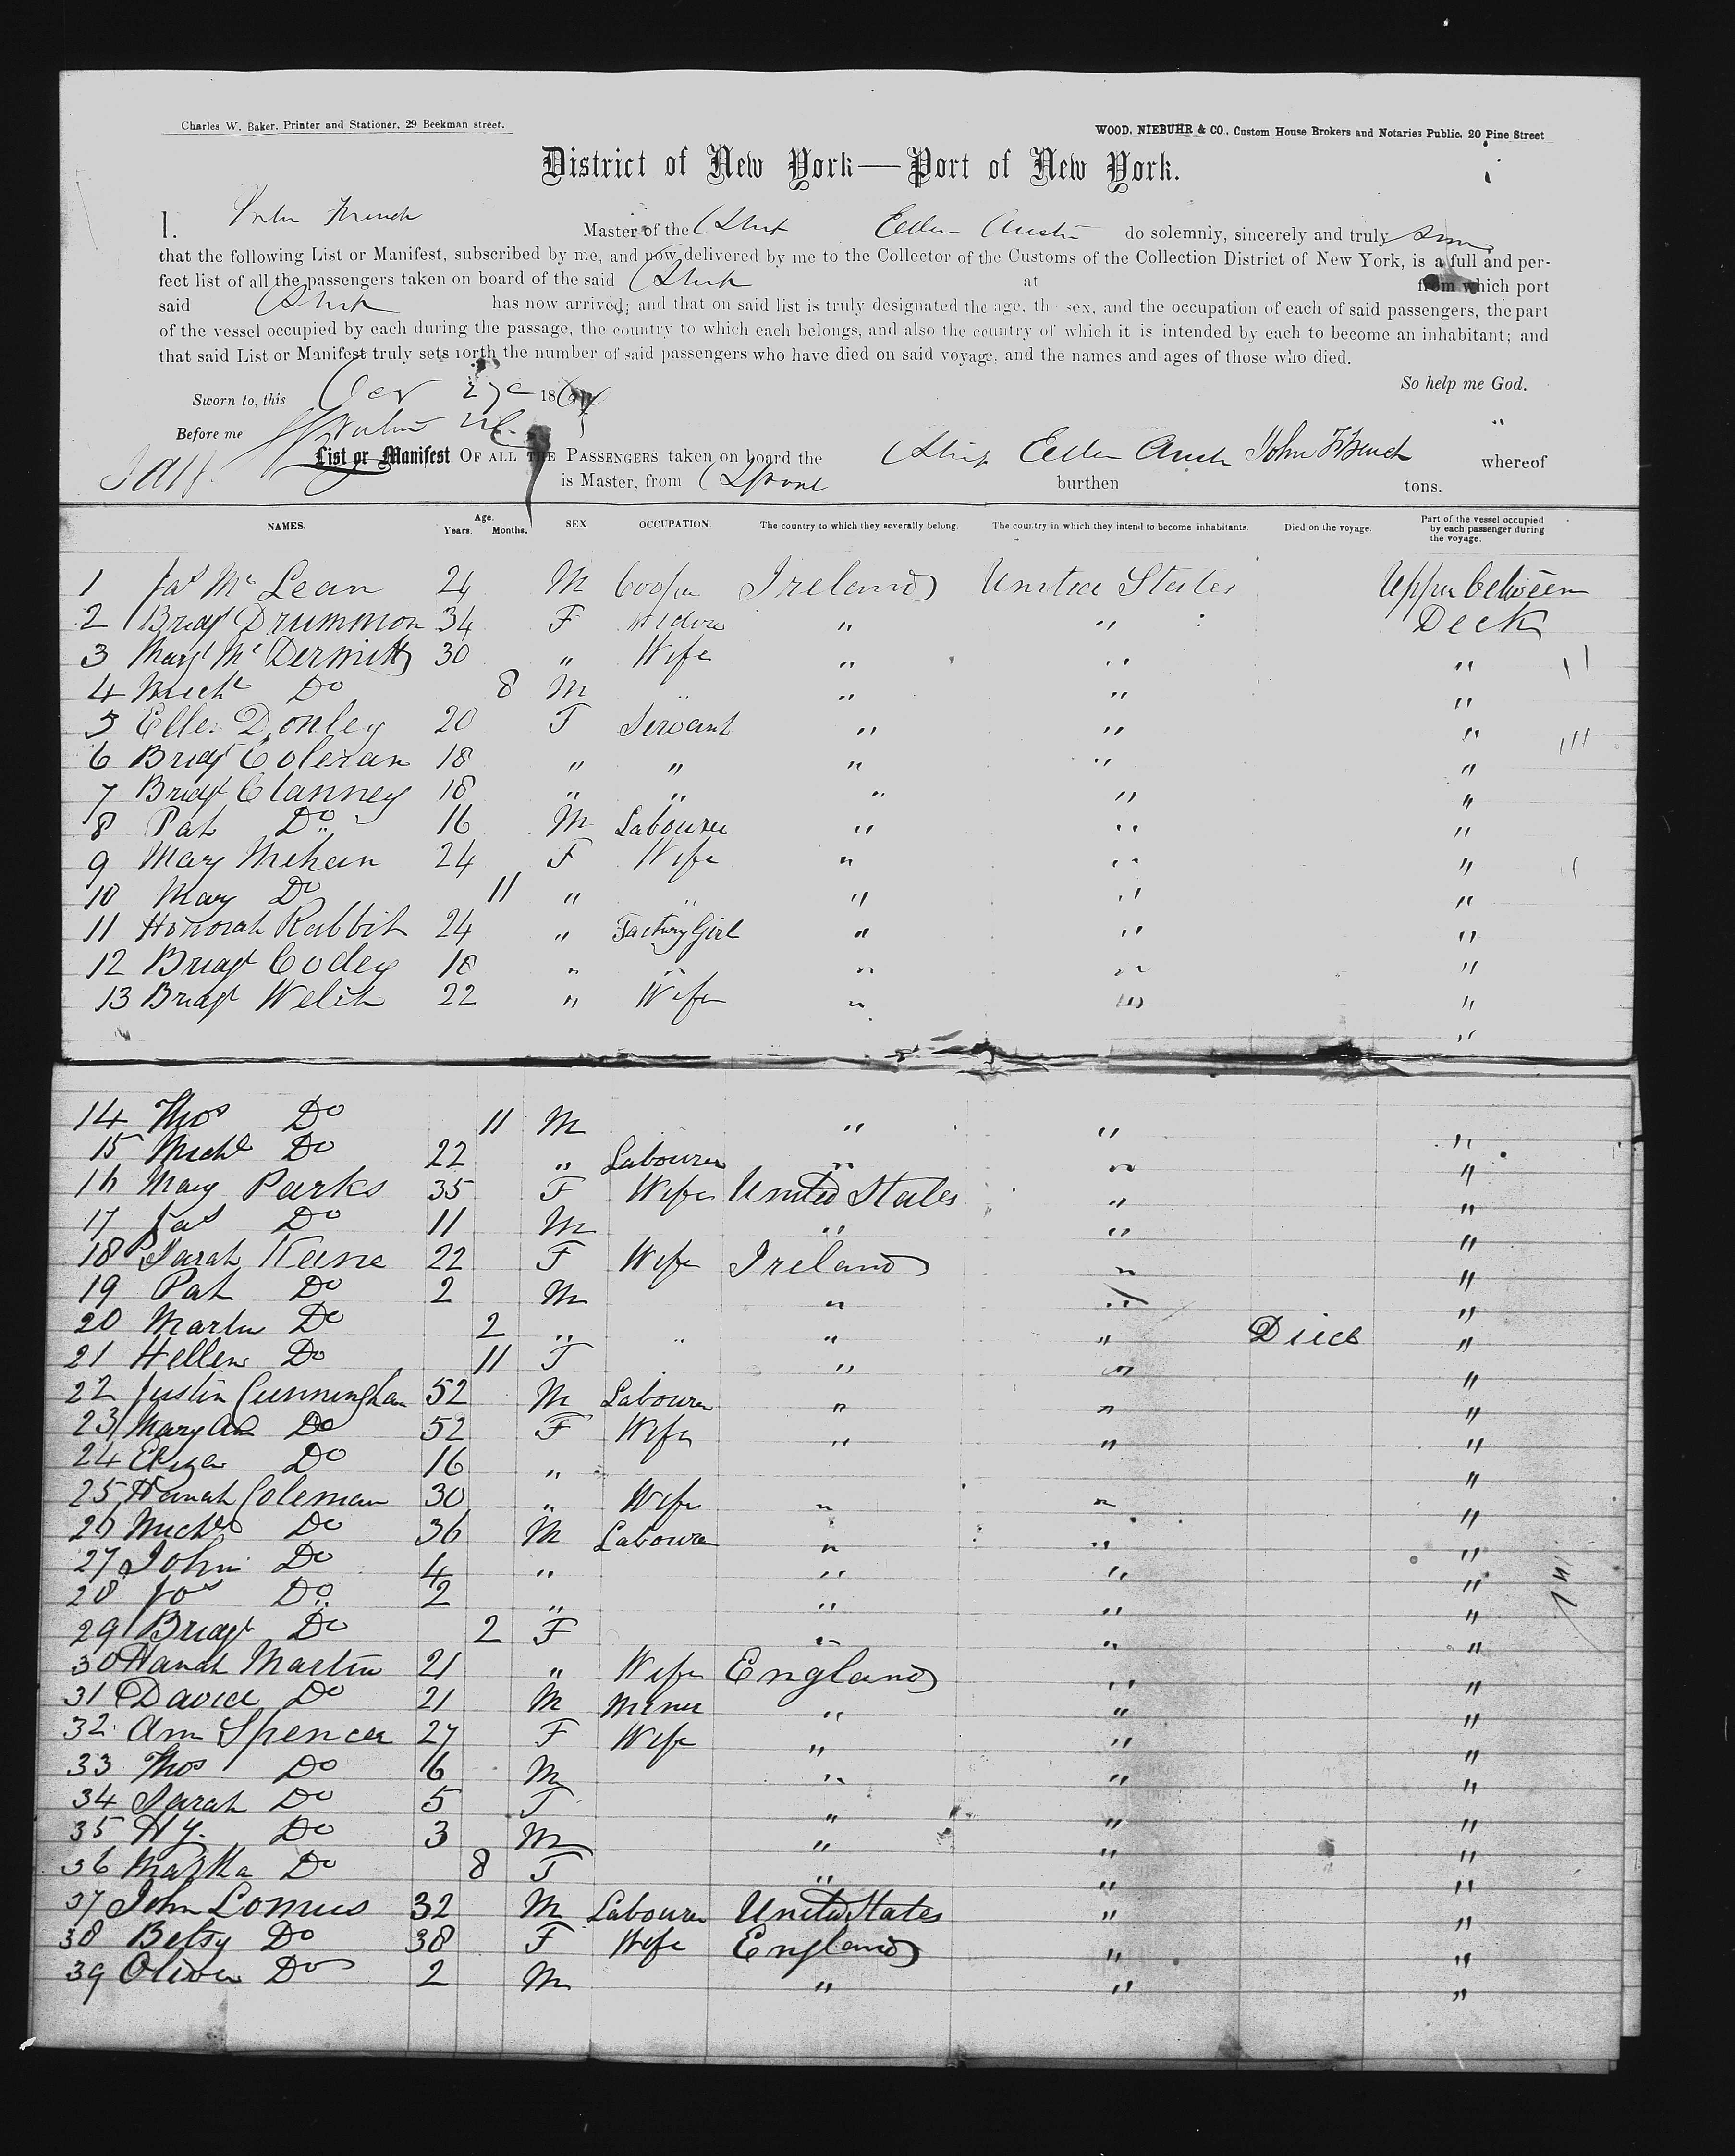 Charles W. Baker, Printer and Stationer, 29 Beekman street.
WOOD, NIEBUHR & CO., Custom House Brokers and Notaries Public, 20 Pine Street
District of New York—Port of New York.
I. John French Master of the Ship Ellen Austin do solemnly, sincerely and truly
that the following List or Manifest, subscribed by me, and now delivered by me to the Collector of the Customs of the Collection District of New York, is a full and per-
fect list of all the passengers taken on board of the said Ship at from which port
said Ship has now arrived; and that on said list is truly designated the age, the sex, and the occupation of each of said passengers, the part
of the vessel occupied by each during the passage, the country to which each belongs, and also the country of which it is intended by each to become an inhabitant; and
that said List or Manifest truly sets forth the number of said passengers who have died on said voyage, and the names and ages of those who died.
So help me God.
Sworn to, this 18
Before me
List or Manifest OF ALL THE PASSENGERS taken on board the Ship Ellen Austin John French whereof
is Master, from Lpool burthen tons.
NAMES. Age. Years. Months. SEX OCCUPATION. The country to which they severally belong. The country in which they intend to become inhabitants. Died on the voyage. Part of the vessel occupied by each passenger during the voyage.
1 Jas McLean 24 M Cooper Ireland United States Upper between
2 Bridgt Drummon 34 F Widow " " Deck
3 Margt McDermitt 30 " Wife " " "
4 Michl Do 8 M " " " "
5 Elle. Donley 20 F Servant " " "
6 Bridgt Coleran 18 " " " " "
7 Bridgt Clanney 18 " " " " "
8 Pat Do 16 M Labourer " " "
9 Mary Mehan 24 F Wife " " "
10 Mary Do 11 " " " " "
11 Honorah Rabbit 24 " Factory Girl " " "
12 Bridgt Codey 18 " " " " "
13 Bridgt Welch 22 " Wife " " "
"
14 Thos Do 11 M " " "
15 Michl Do 22 " Labourer " " "
16 Mary Parks 35 F Wife United States " "
17 Jas Do 11 M " " "
18 Sarah Kane 22 F Wife Ireland " "
19 Pat Do 2 M " " "
20 Martin Do 2 " " " " Died "
21 Hellen Do 11 F " " "
22 Justin Cunningham 52 M Labourer " " "
23 Mary Ann Do 52 F Wife " " "
24 Eliza Do 16 " "
25 Hanah Coleman 30 " Wife " " "
26 Michl Do 36 M Labourer " " "
27 John Do 4 " " " "
28 Jos Do 2 " " " "
29 Bridgt Do 2 F " " "
30 Hanah Martin 21 " Wife England " "
31 David Do 21 M Miner " " "
32 Ann Spencer 27 F Wife " " "
33 Thos Do 6 M " " "
34 Sarah Do 5 F " " "
35 Hy. Do 3 M " " "
36 Martha Do 8 F " " "
37 John Lomus 32 M Labourer United States " "
38 Betsy Do 38 F Wife England " "
39 Oliver Do 2 M " " "